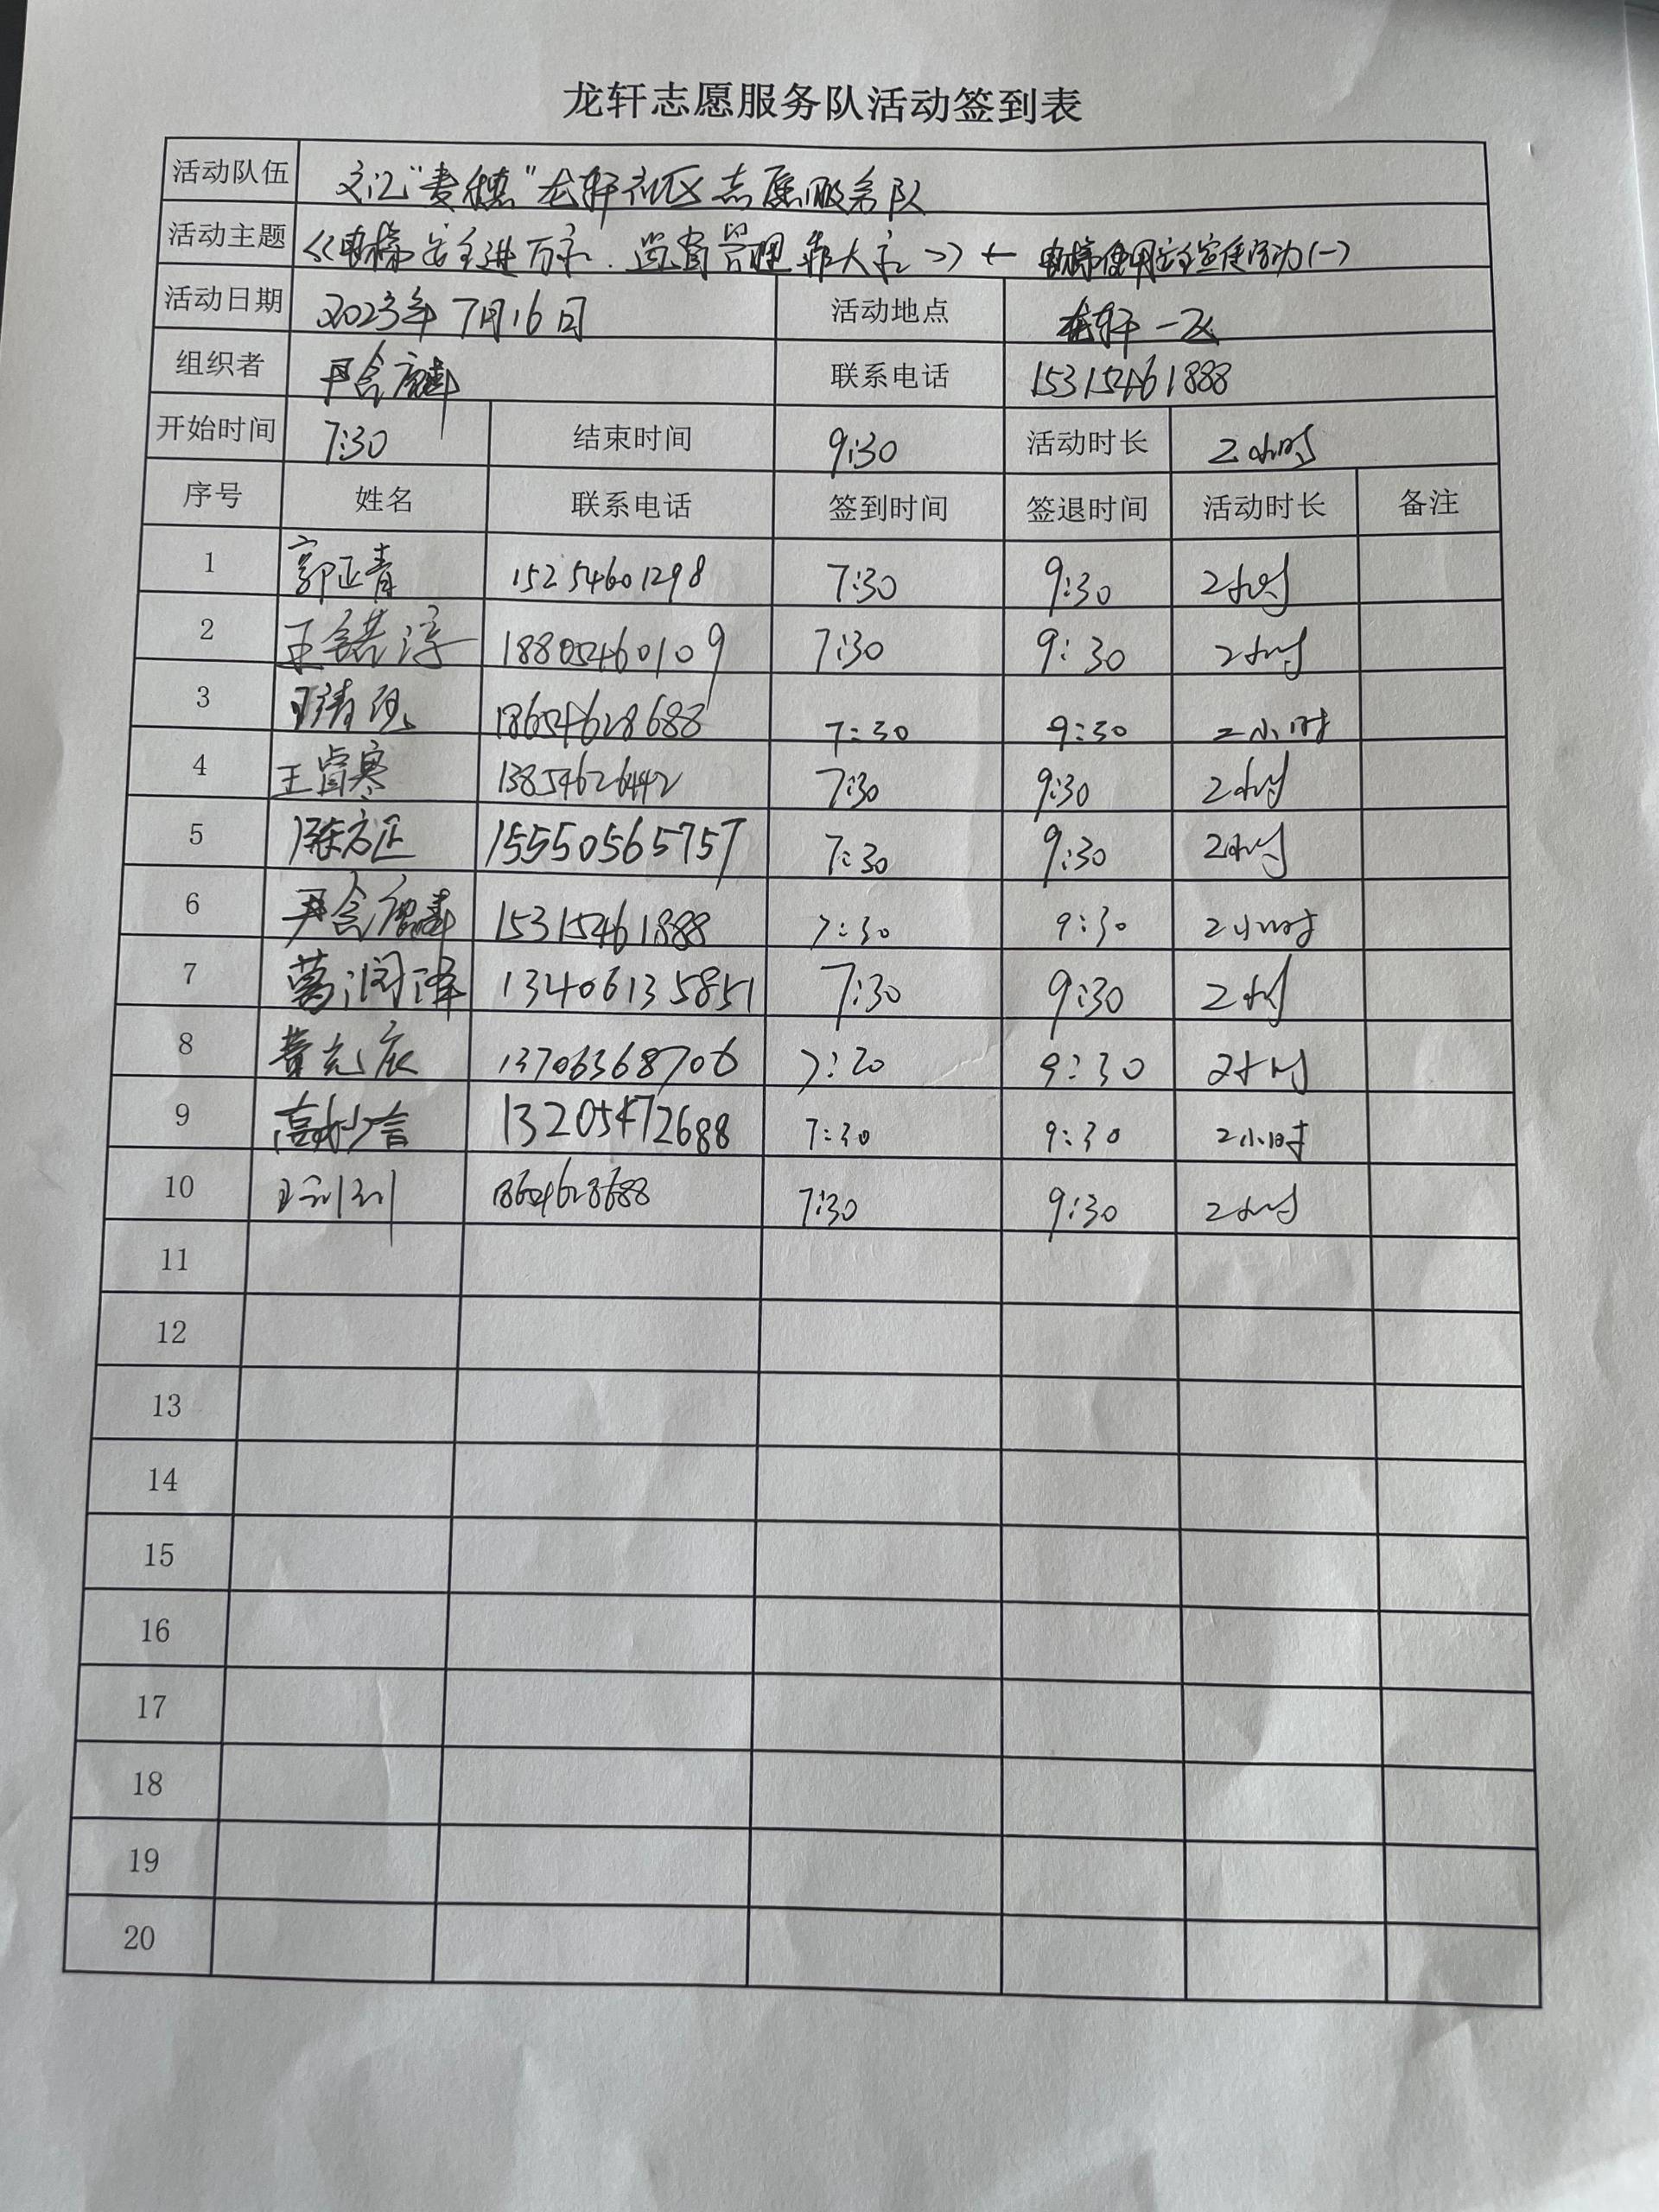 龙轩志愿服务队活动签到表
活动队伍 文汇“麦穗”龙轩社区志愿服务队
活动主题 《电梯安全进万家.监督管理靠大家》← 电梯使用安全宣传活动(一)
活动日期 2023年7月16日 活动地点 龙轩一区
组织者 尹含 联系电话 15315461888
开始时间 7:30 结束时间 9:30 活动时长 2小时
序号 姓名 联系电话 签到时间 签退时间 活动时长 备注
1 郭正青 15254601298 7:30 9:30 2小时
2 王 淳 18805460109 7:30 9:30 2小时
3 王靖 18654628688 7:30 9:30 2小时
4 王 寒 13854626442 7:30 9:30 2小时
5 陈方正 15550565757 7:30 9:30 2小时
6 尹含 15315461888 7:30 9:30 2小时
7 葛润泽 13406135851 7:30 9:30 2小时
8 13706368706 7:20 9:30 2小时
9 高 13205472688 7:30 9:30 2小时
10 王 18654628688 7:30 9:30 2小时
11
12
13
14
15
16
17
18
19
20